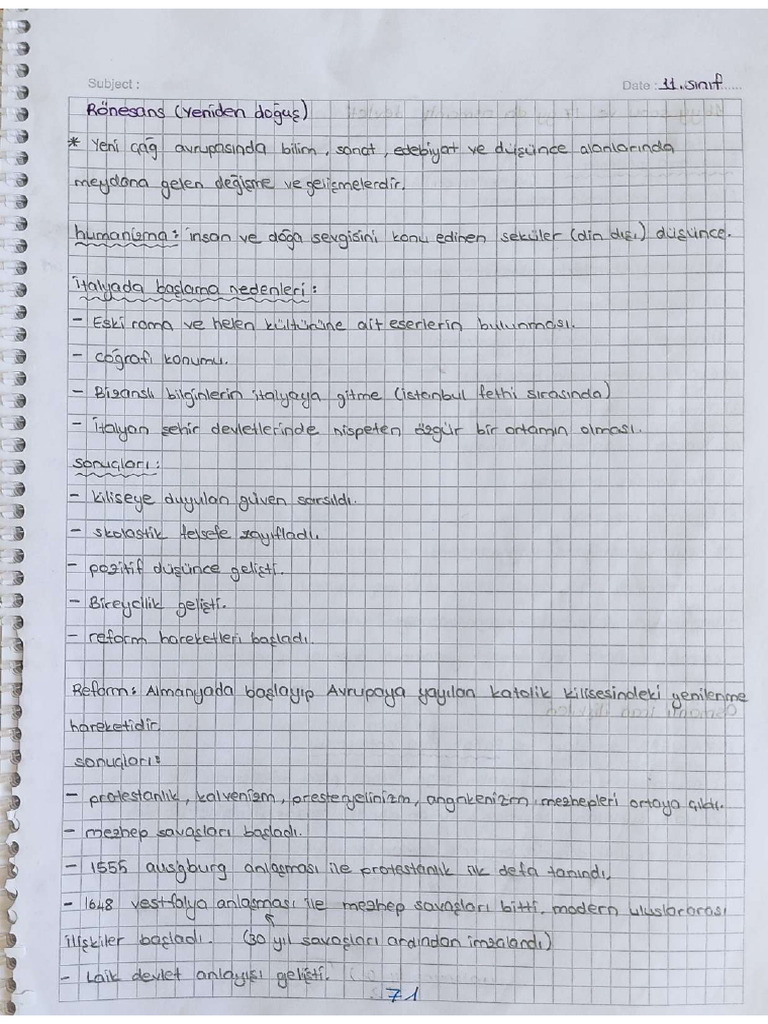 Subject :
Date : 11. sınıf......
Rönesans (yeniden doğuş)
* Yeni çağ avrupasında bilim, sanat, edebiyat ve düşünce alanlarında
meydana gelen değişme ve gelişmelerdir.
humanizma: insan ve doğa sevgisini konu edinen seküler (din dışı) düşünce.
italyada başlama nedenleri:
- Eski roma ve helen kültürüne ait eserlerin bulunması.
- coğrafi konumu.
- Bizanslı bilginlerin italyaya gitme (istanbul fethi sırasında)
- italyan şehir devletlerinde nispeten özgür bir ortamın olması.
sonuçları:
- kiliseye duyulan güven sarsıldı.
- skolastik felsefe zayıfladı.
- pozitif düşünce gelişti.
- Bireycilik gelişti.
- reform hareketleri başladı.
Reform: Almanyada başlayıp Avrupaya yayılan katolik kilisesindeki yenilenme
hareketidir.
sonuçları:
- protestanlık, kalvenizm, presteryelinizm, angnkenizm mezhepleri ortaya çıktı.
- mezhep savaşları başladı.
- 1555 ausigburg anlaşması ile protestanlık ilk defa tanındı.
- 1648 vestfalya anlaşması ile mezhep savaşları bitti, modern uluslararası
ilişkiler başladı. (30 yıl savaşları ardından imzalandı)
- Laik devlet anlayışı gelişti.
71